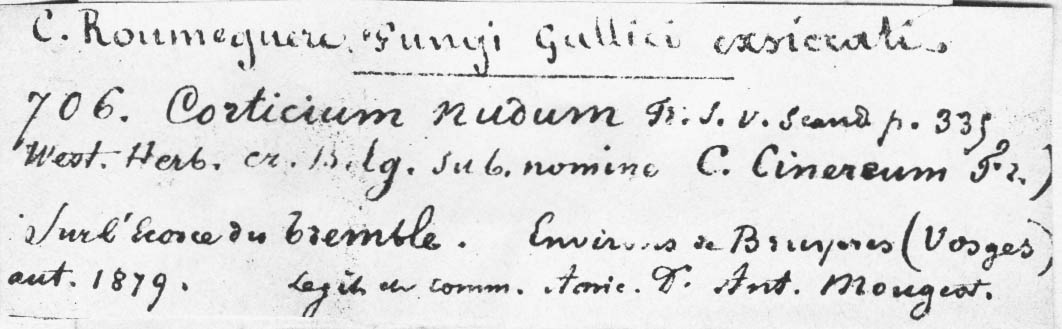 C. Roumeguere. Fungi Gallici exsiccati.
706. Corticium nudum Fr. S. v. Scand p. 335
West. Herb. cr. Belg. sub. nomine C. Cinereum Fr.)
Sur l'Ecorce du Tremble. Environs de Bruyeres (Vosges)
aut. 1879. Legit et comm. Amic. D. Ant. Mougeot.